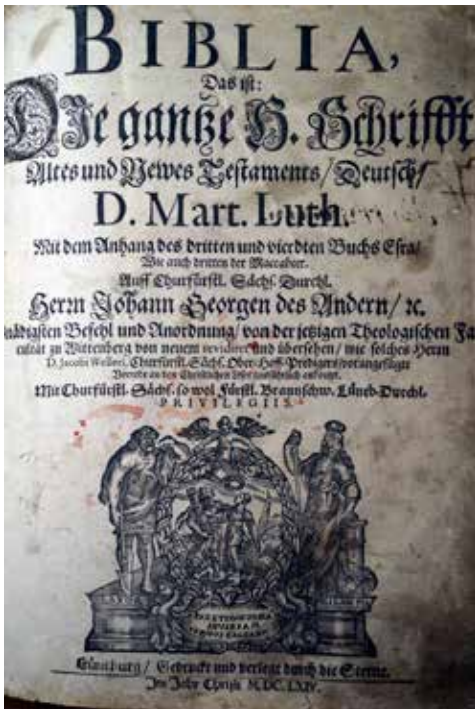 BIBLIA,
Das ist:
Die gantze H. Schrifft
Altes und Newes Testaments/ Deutsch/
D. Mart. Luth.
Mit dem Anhang des dritten und vierdten Buchs Esra/
Wie auch dritten der Maccabeer.
Auff Churfürstl. Sächs. Durchl.
Herrn Johann Georgen des Andern/ ꝛc.
nädigsten Befehl und Anordnung/ von der jetzigen Theologischen Fa-
cultät zu Wittenberg von neuem revidiret und übersehen/ wie solches Herrn
D. Jacobi Welleri, Churfürstl. Sächs. Ober-Hoff-Predigers/ vorangefügte
Vorrede an den Christlichen Leser
Mit Churfürstl. Sächs. so wol Fürstl. Braunschw. Lüneb. Durchl.
PRIVILEGIIS.
Lüneburg/ Gedruckt und verlegt durch die Sterne.
Im Jahr Christi M.DC.LXIV.